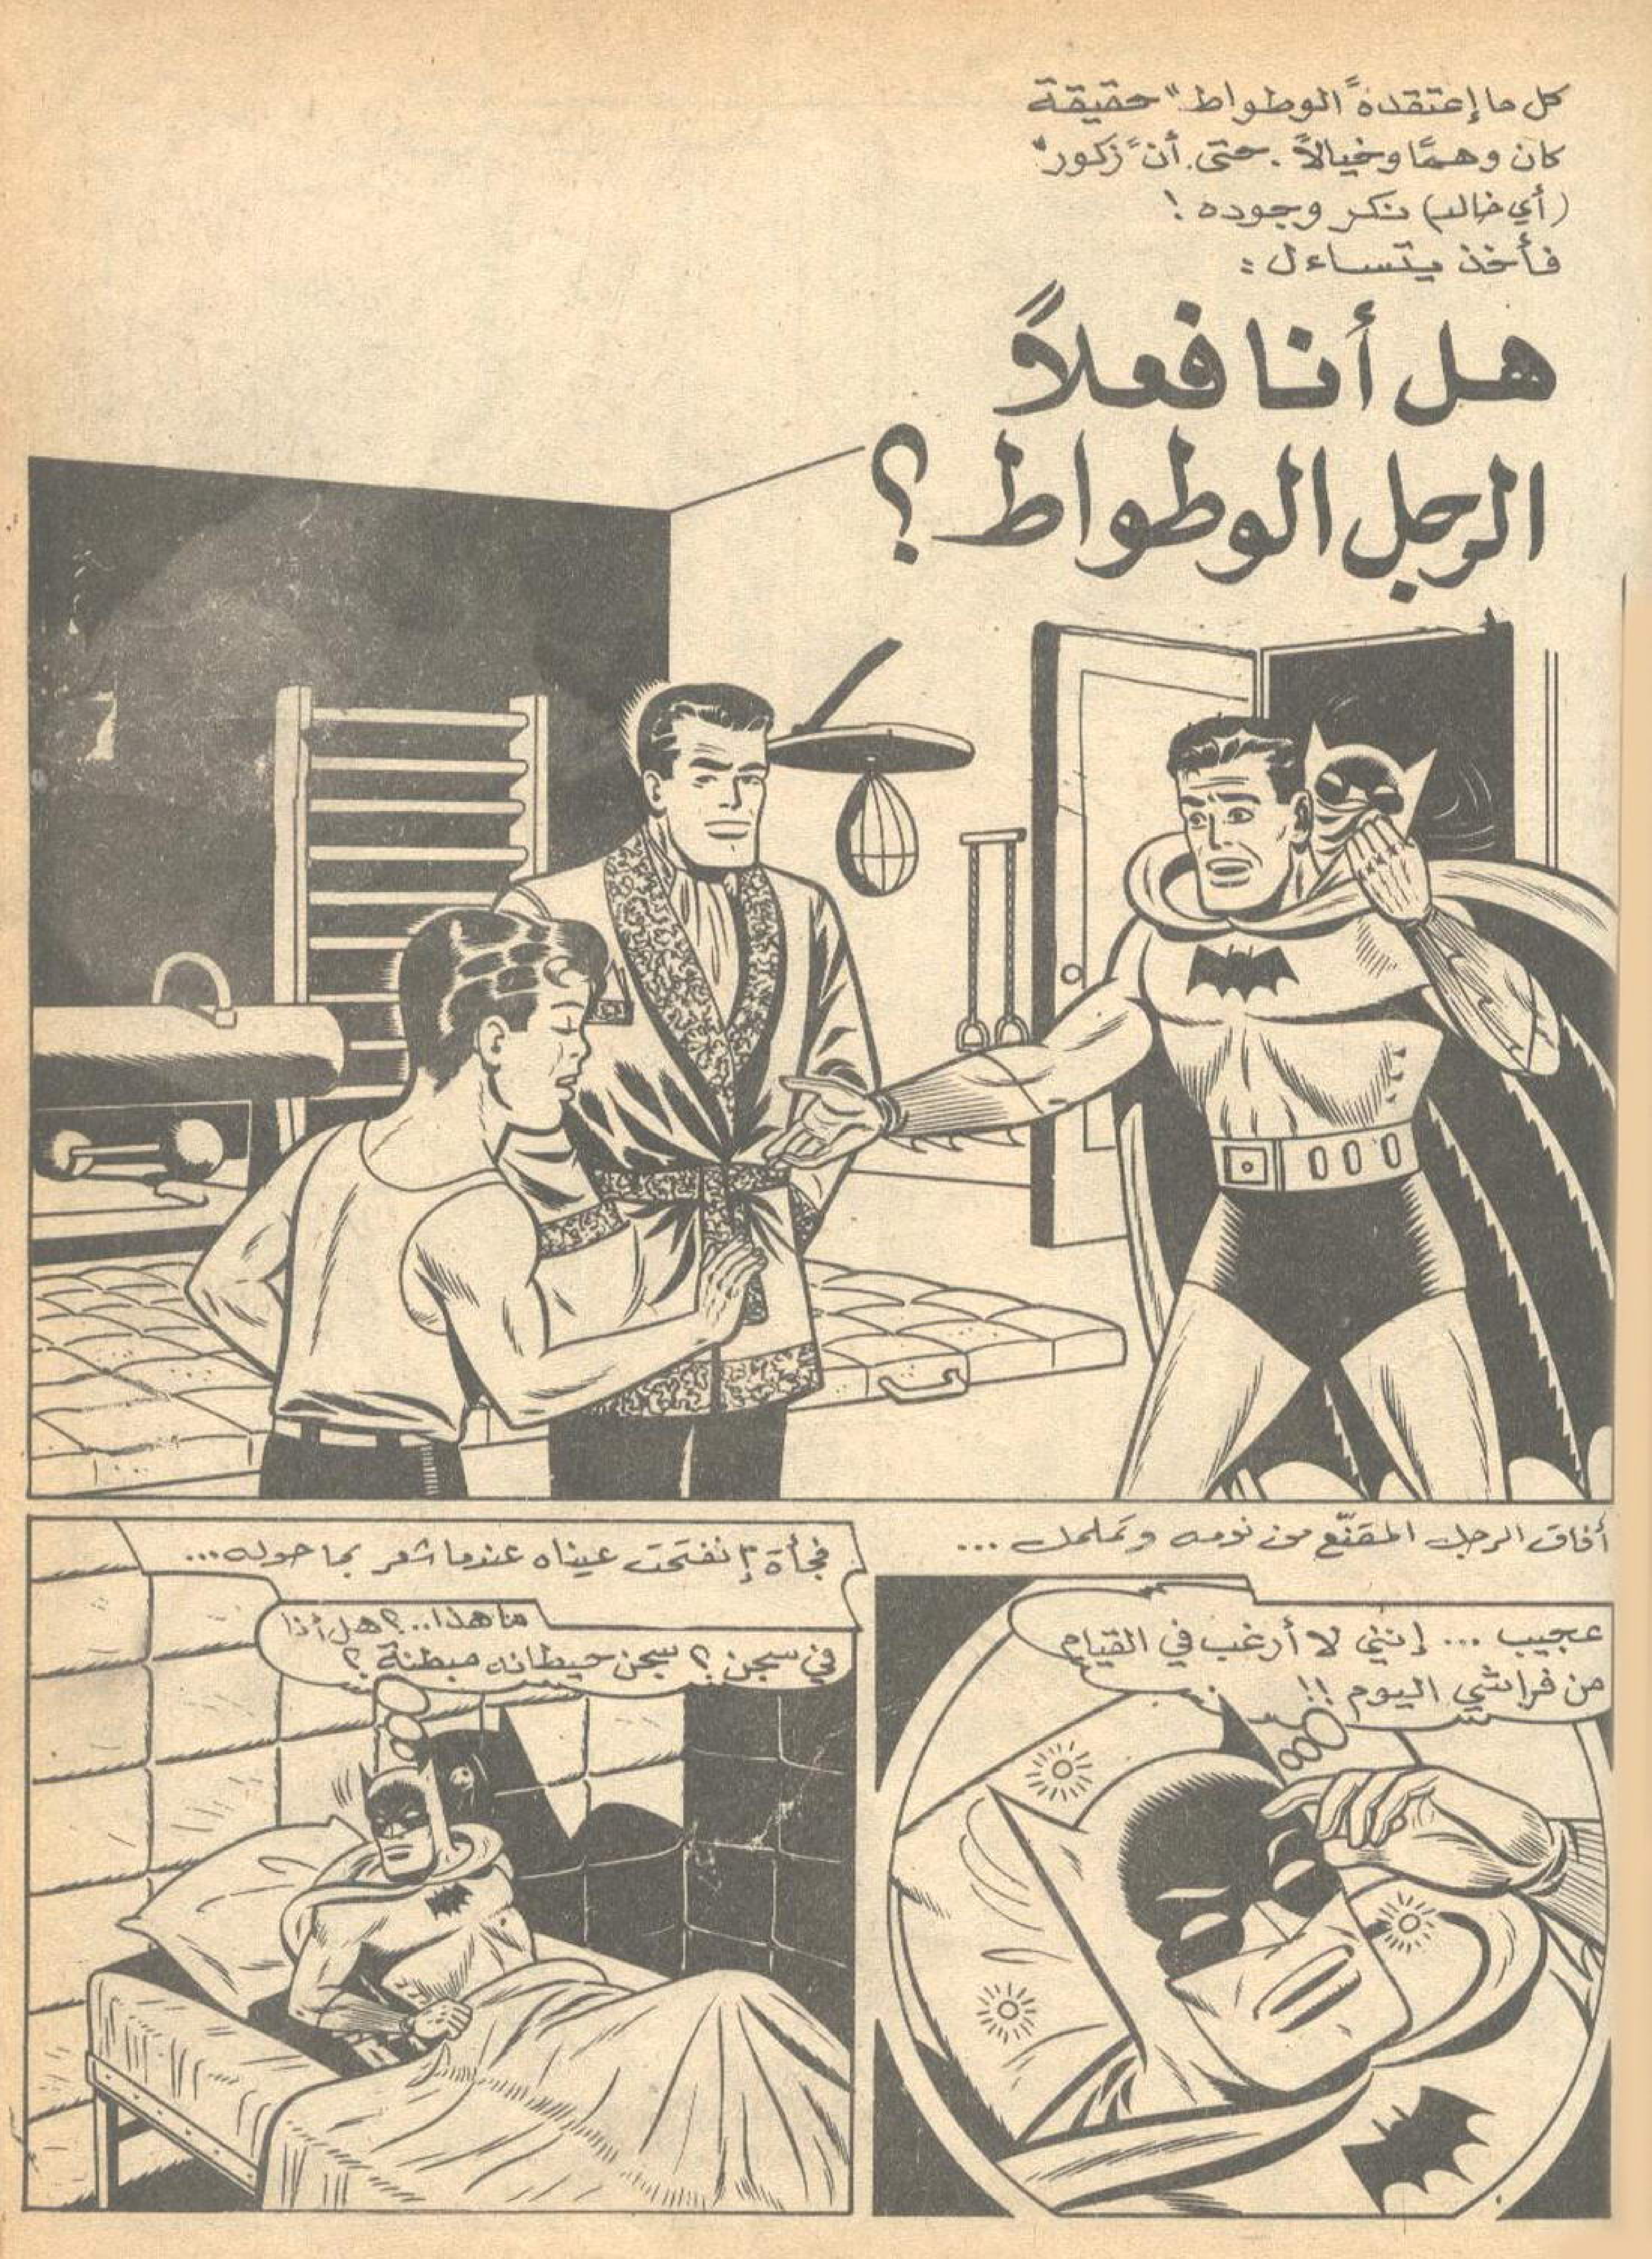 كل ما إعتقده "الوطواط" حقيقة
كان وهمًا وخيالاً. حتى أن "زكور"
(أي خالد) نكر وجوده !
فأخذ يتساءل :
هل أنا فعلاً
الرجل الوطواط ؟
أفاق الرجل المقنّع من نومه وتململ ...
عجيب ... إنني لا أرغب في القيام
من فراشي اليوم !!
فجأة إنفتحت عيناه عندما شعر بما حوله...
ما هذا..؟ هل أنا
في سجن ؟ سجن حيطانه مبطنة ؟